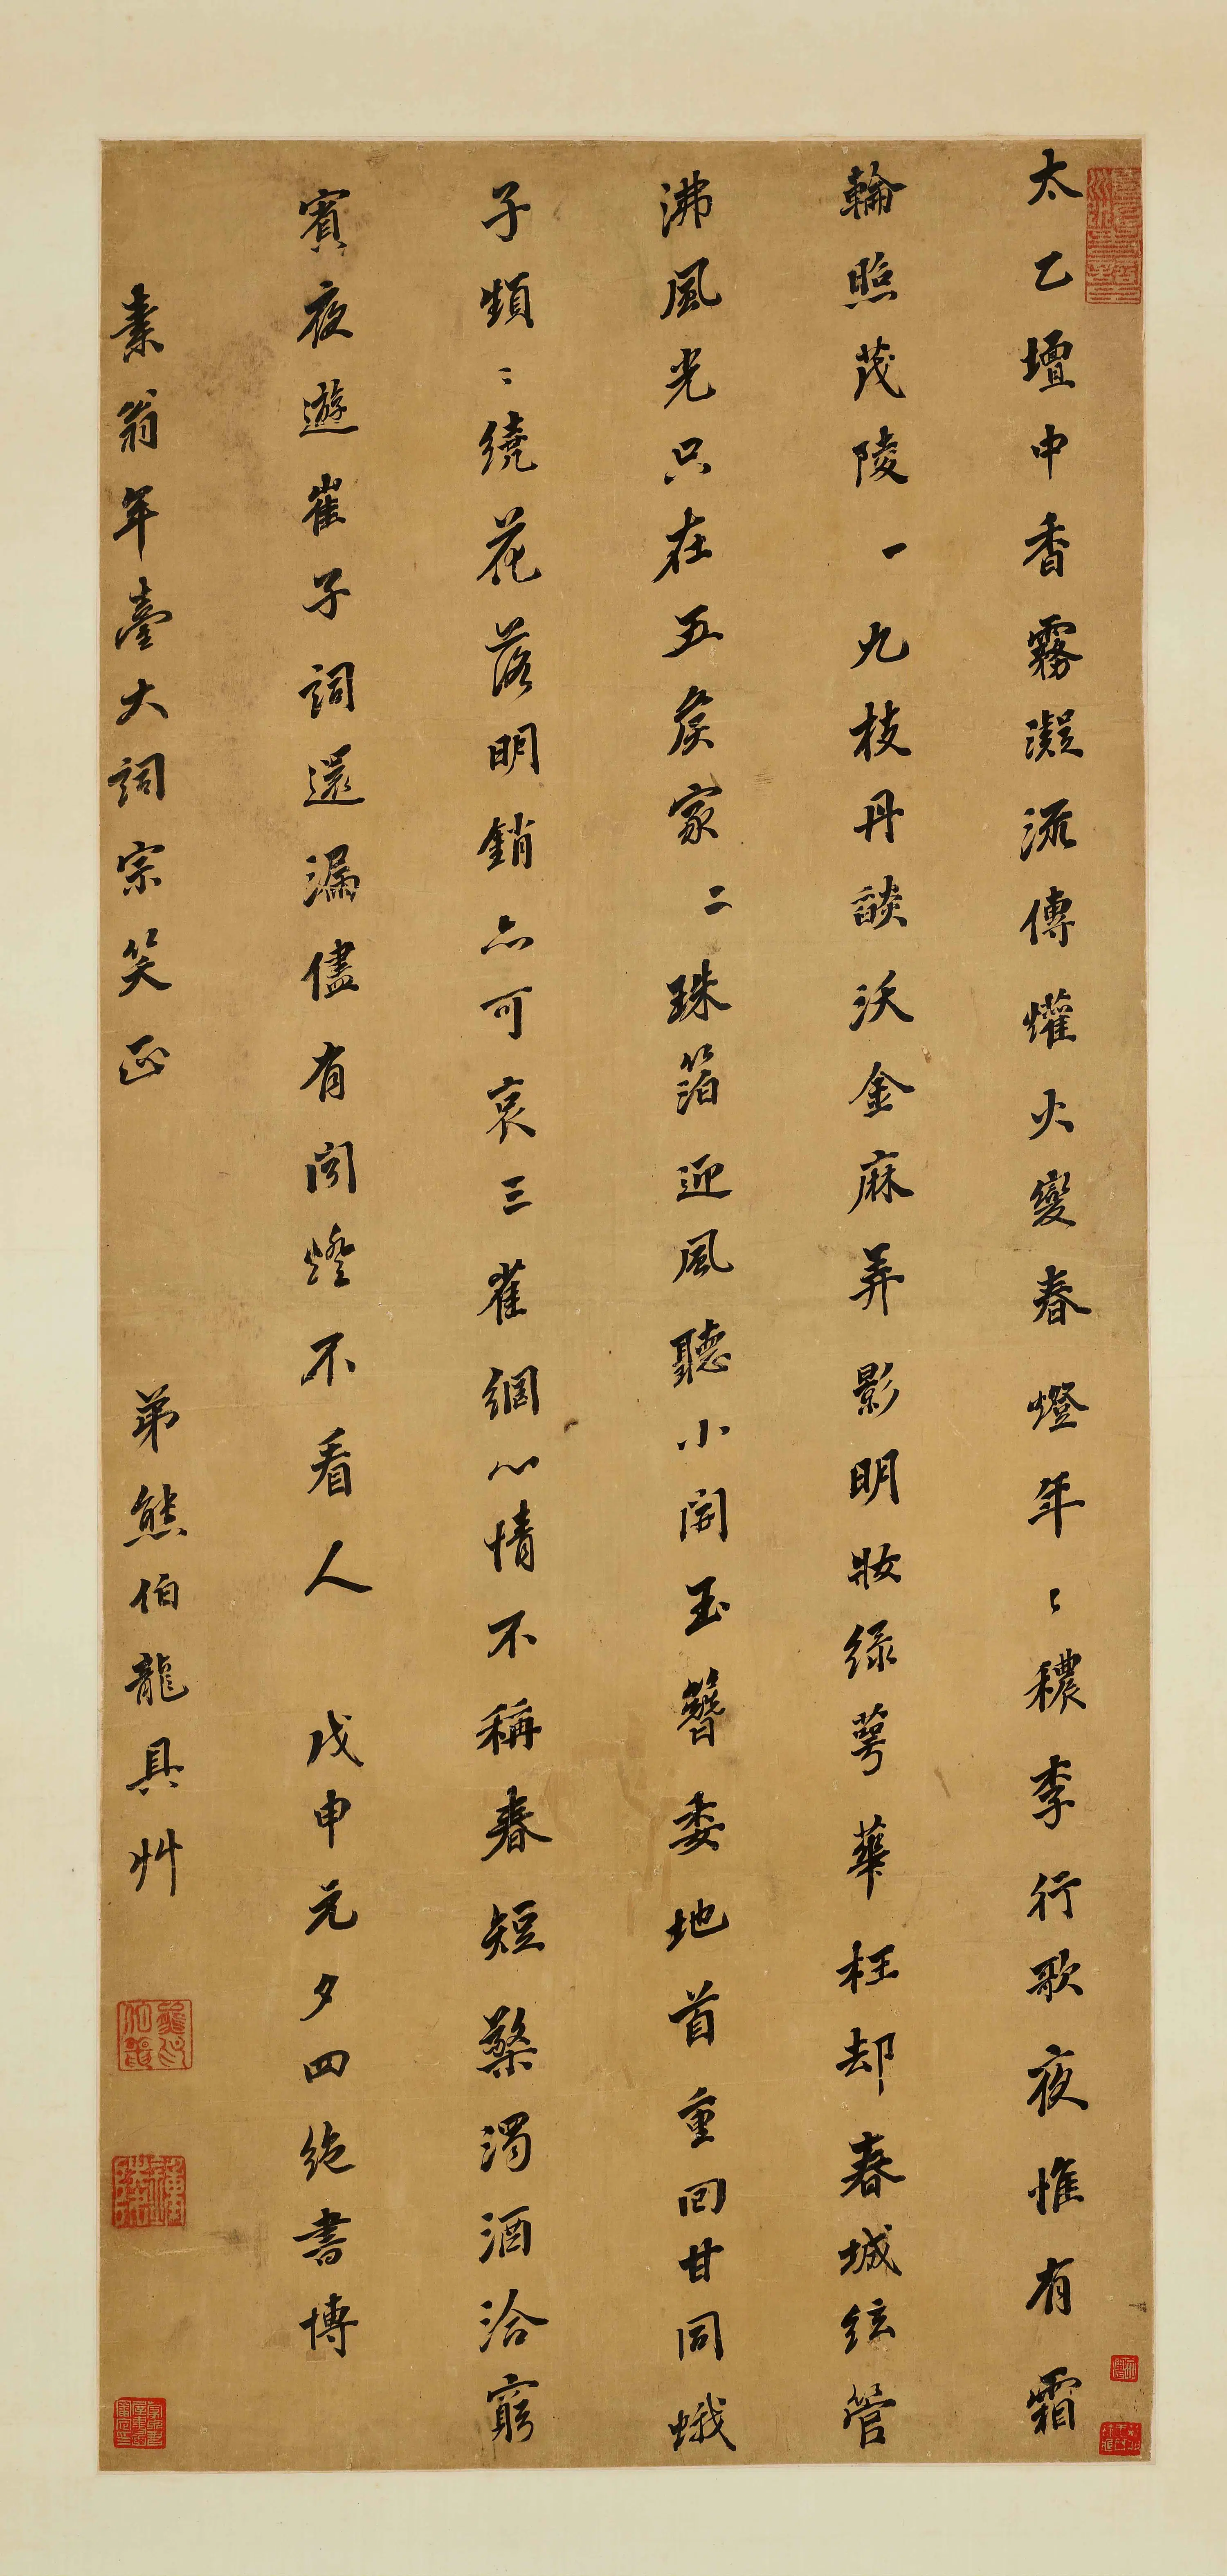 太乙壇中香霧凝流傳爟火變春燈年〻穠李行歌夜惟有霜
輪照茂陵一九枝丹燄沃金麻弄影明妝綠萼華枉却春城絃管
沸風光只在五矦家二珠箔迎風聽小開玉簪委地首重回甘同蛾
子頻〻繞花落明銷亦可哀三雀網心情不稱春短檠濁酒洽窮
賓夜遊崔子詞還漏儘有閑燈不看人 戊申元夕四絕書博
素翁年臺大詞宗笑正 弟熊伯龍具艸